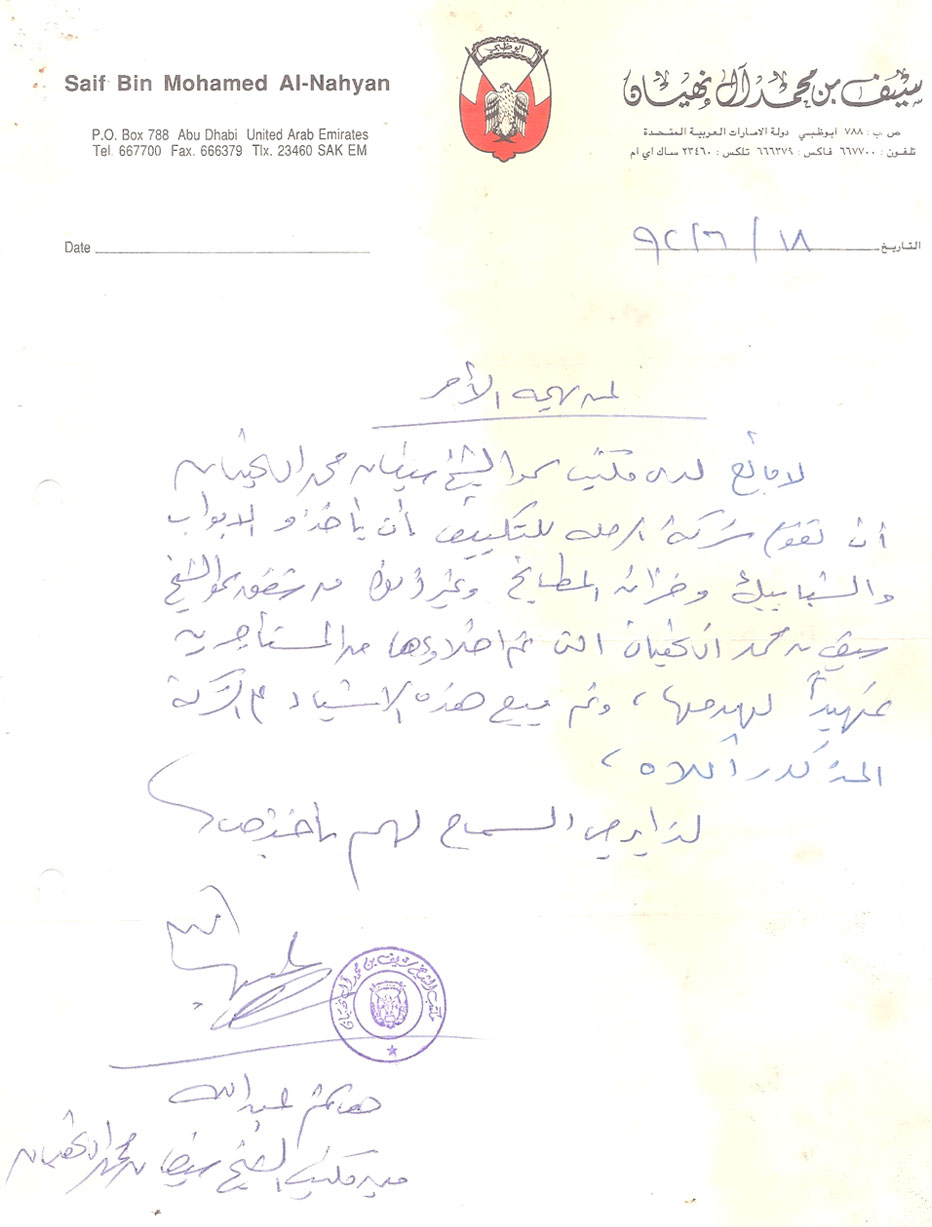 ابوظبي
Saif Bin Mohamed Al-Nahyan
سيف بن محمد آل نهيان
P.O. Box 788 Abu Dhabi United Arab Emirates
Tel. 667700 Fax. 666379 Tlx. 23460 SAK EM
ص ب : ٧٨٨ ابوظبي دولة الامارات العربية المتحدة
تلفون : ٦٦٧٧٠٠ فاكس : ٦٦٦٣٧٩ تلكس : ٢٣٤٦٠ ساك اي ام
Date
التاريخ ١٨ / ٦ / ٩٢
لمن يهمه الأمر
لا مانع لدى مكتب سمو الشيخ سيف بن محمد آل نهيان
أن تقوم شركة للتكييف بأن يأخذو الابواب
والشبابيك وخزائن المطابخ وغير ذلك من شقق سمو الشيخ
سيف بن محمد آل نهيان التي تم اخلاؤها من المستأجرين
تمهيداً لهدمها ، وتم بيع هذه الاشياء الشركة
المذكور أعلاه ،
لذا يرجى السماح لهم
مكتب الشيخ سيف بن محمد آل نهيان
عبدالله
مدير مكتب الشيخ سيف بن محمد آل نهيان